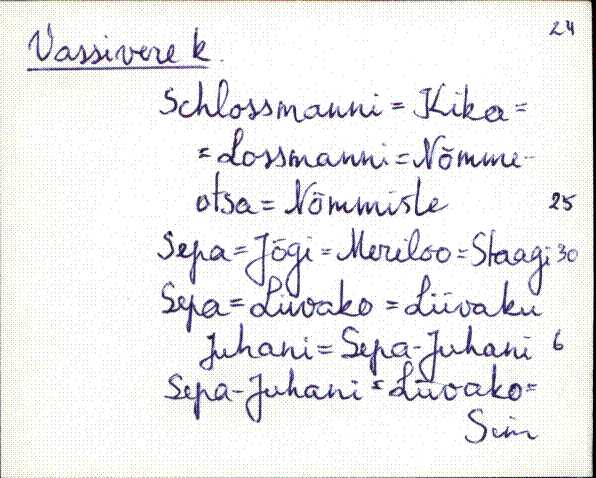 24
Vassivere k.
Schlossmanni = Kika =
= Lossmanni = Nõmme-
otsa = Nõmmiste 25
Sepa = Jõgi = Meriloo = Staagi 30
Sepa = Liivako = Liivaku
Juhani = Sepa-Juhani 6
Sepa-Juhani = Liivako =
Sim